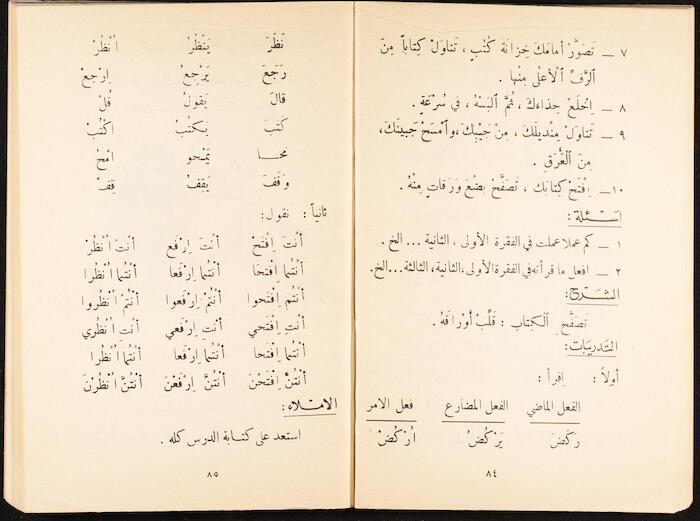 ٧ — تَصَوَّرْ أمامَكَ خِزانَةَ كُتُبٍ، تَناوَلْ كِتاباً مِنَ
الرَّفِّ الْأعْلَى مِنْها.
٨ — اِخْلَعْ حِذاءَكَ، ثُمَّ الْبَسْهُ، في سُرْعَةٍ.
٩ — تَناوَلْ مِنْديلَكَ، مِنْ جَيْبِكَ، وَامْسَحْ جَبينَكَ،
مِنَ الْعَرَقِ.
١٠ — اِفْتَحْ كِتابَكَ، تَصَفَّحْ بِضْعَ وَرَقاتٍ مِنْهُ.
اسئلة:
١ — كم عملا عملت في الفقرة الأولى، الثانية ... الخ.
٢ — افعل ما قرأته في الفقرة الأولى، الثانية، الثالثة ... الخ.
الشرح:
تَصَفَّحِ الكِتابَ: قَلِّبْ أوْراقَهُ.
التدريبات:
أولاً: اِقرأ:
الفعل الماضي الفعل المضارع فعل الامر
رَكَضَ يَرْكُضُ اُرْكُضْ
٨٤
نَظَرَ يَنْظُرُ اُنْظُرْ
رَجَعَ يَرْجِعُ اِرْجِعْ
قالَ يَقولُ قُلْ
كَتَبَ يَكتُبُ اُكْتُبْ
مَحـا يَمْحو اُمْحُ
وَقَفَ يَقِفُ قِفْ
ثانياً: نقول:
أنْتَ اِفْتَحْ أنْتَ اِرْفَعْ أنْتَ اُنْظُرْ
أنْتُما اِفْتَحَا أنْتُما اِرْفَعا أنْتُما اُنْظُرا
أنْتُم اِفْتَحوا أنْتُمْ اِرْفَعوا أنْتُمْ اُنْظُروا
أنْتِ اِفْتَحي أنْتِ اِرْفَعي أنْتِ اُنْظُري
أنْتُما اِفْتَحا أنْتُما اِرْفَعا أنْتُما اُنْظُرا
أنْتُنَّ اِفْتَحْنَ أنْتُنَّ اِرْفَعْنَ أنْتُنَّ اُنْظُرْنَ
الاملاء:
استعد على كتابة الدرس كله.
٨٥